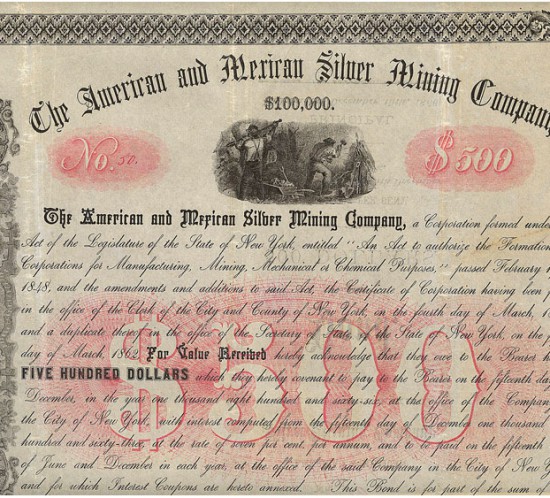 The American and Mexican Silver Mining Company
$100,000.
No. 50.
$500
The American and Mexican Silver Mining Company, a Corporation formed under
Act of the Legislature of the State of New York, entitled "An Act to authorize the Formation
Corporations for Manufacturing, Mining, Mechanical or Chemical Purposes," passed February
1848, and the amendments and additions to said Act, the Certificate of Corporation having been
in the office of the Clerk of the City and County of New York, on the fourth day of March, 1
and a duplicate thereof in the office of the Secretary of State, of the State of New York, on the
day of March, 1862, For Value Received hereby acknowledge that they owe to the Bearer
FIVE HUNDRED DOLLARS which they hereby covenant to pay to the Bearer on the fifteenth day
December, in the year one thousand eight hundred and sixty-six, at the office of the Company
the City of New York, with interest computed from the fifteenth day of December one thousand
hundred and sixty-three, at the rate of seven per cent. per annum, and to be paid on the fifteenth
of June and December in each year, at the office of the said Company in the City of New
and for which Interest Coupons are hereto annexed. This Bond is for part of the sum of
$500